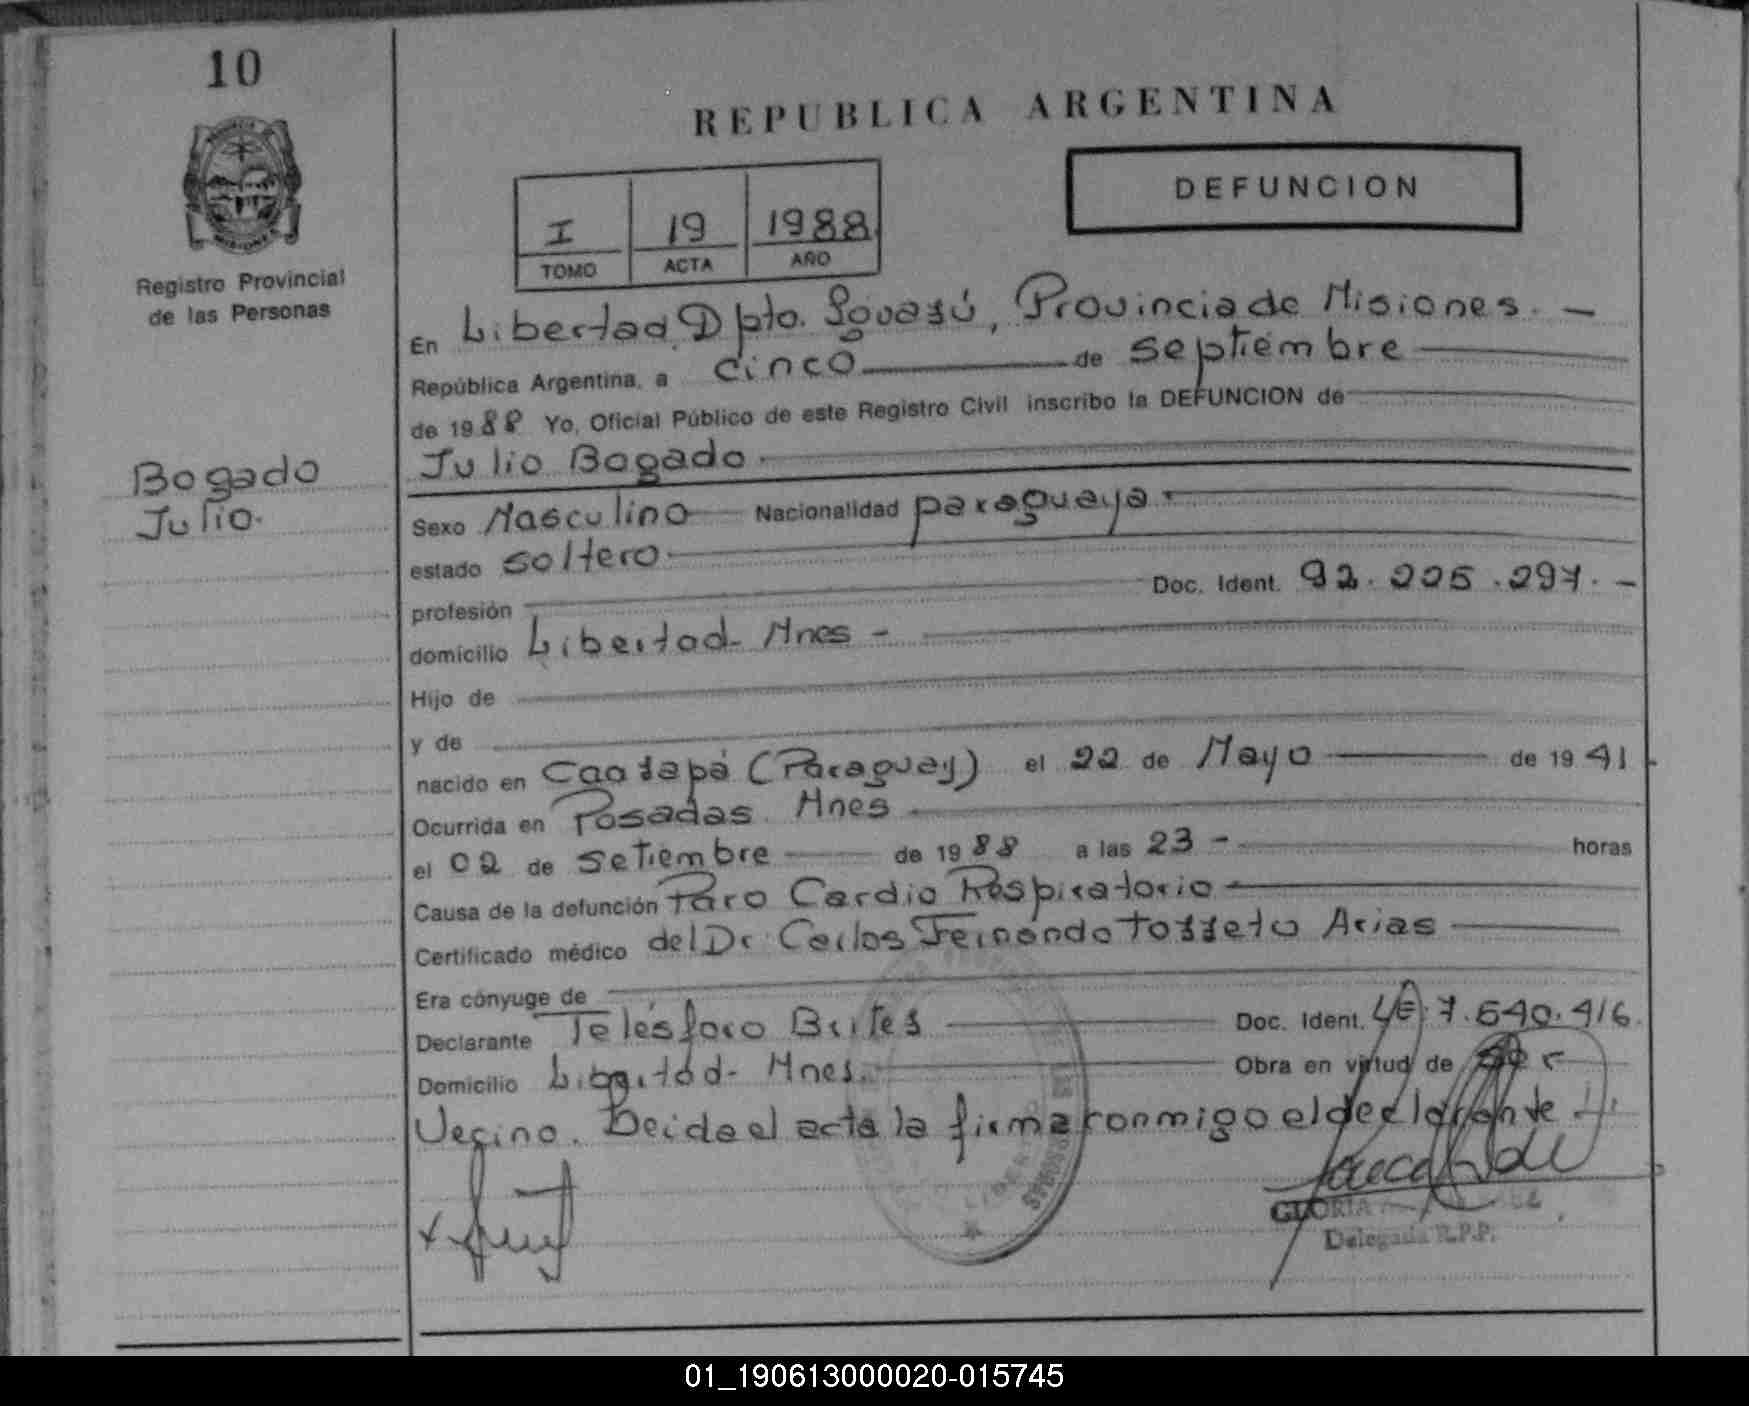 10
REPUBLICA ARGENTINA
DEFUNCION
I 19 1988
TOMO ACTA AÑO
Registro Provincial
de las Personas
En Libertad Dpto. Iguazú, Provincia de Misiones. -
República Argentina, a cinco de septiembre
de 1988 Yo, Oficial Público de este Registro Civil inscribo la DEFUNCION de
Julio Bogado.
Bogado
Julio.
Sexo Masculino Nacionalidad paraguaya.
estado soltero
profesión Doc. Ident. 92.225.297. -
domicilio Libertad - Mnes -
Hijo de
y de
nacido en Caazapá (Paraguay) el 22 de Mayo de 1941
Ocurrida en Posadas. Mnes
el 02 de Setiembre de 1988 a las 23 - horas
Causa de la defunción Paro Cardio Respiratorio
Certificado médico del Dr Carlos Fernando Arias
Era cónyuge de
Declarante Telésforo Brites Doc. Ident. LE: 7.640.416.
Domicilio Libertad - Mnes. Obra en virtud de ser
Vecino. Leida el acta la firma conmigo el declarante
GLORIA
Delegada R.P.P.
01_190613000020-015745